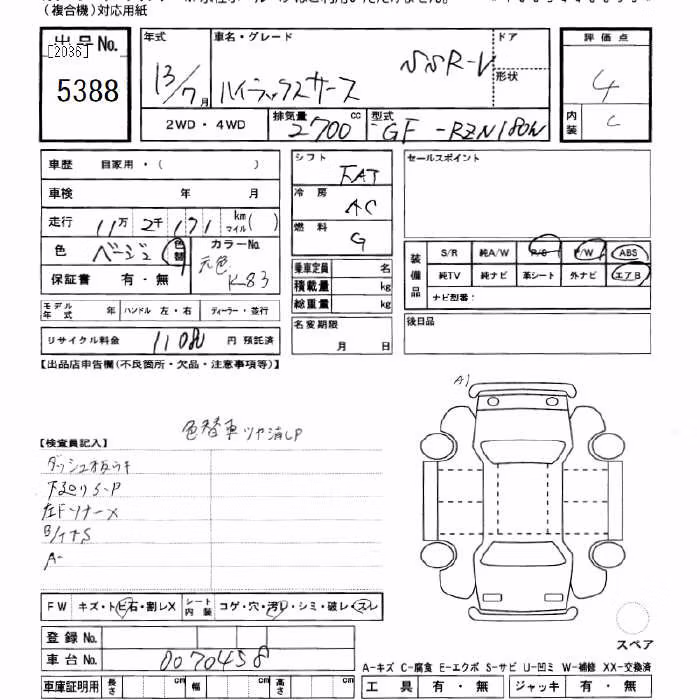 (複合機)対応用紙
出品No.
[2036]
5388
年式 車名・グレード ドア 形状 評価点
13/7月 ハイラックスサーフ SSR-V 4
内装 C
2WD・4WD 排気量 2700 cc 型式 GF-RZN180W
車歴 自家用・( )
車検 年 月
走行 11万2千171 km マイル( )
色 ベージュ 色替 カラーNo. 元色 K83
保証書 有・無
シフト FAT
冷房 AC
燃料 G
乗車定員 名
積載量 kg
総重量 kg
セールスポイント
装備品 S/R 純A/W R/S P/W ABS
純TV 純ナビ 革シート 外ナビ エアB
ナビ型番:
モデル年式 年 ハンドル 左・右 ディーラー・並行
リサイクル料金 11080 円 預託済
名変期限 月 日
後日品
【出品店申告欄(不良箇所・欠品・注意事項等)】
色替車ツヤ消しP
A1
【検査員記入】
ダッシュ板ウキ
下廻りS・P
左FソナーX
B/イナS
A-
FW キズ・トビ石・割レX シート内装 コゲ・穴・汚レ・シミ・破レ・スレ
登録No.
車台No. 0070458
車庫証明用 長さ cm 幅 cm 高さ cm
スペア
A-キズ C-腐食 E-エクボ S-サビ U-凹ミ W-補修 XX-交換済
工具 有・無 ジャッキ 有・無